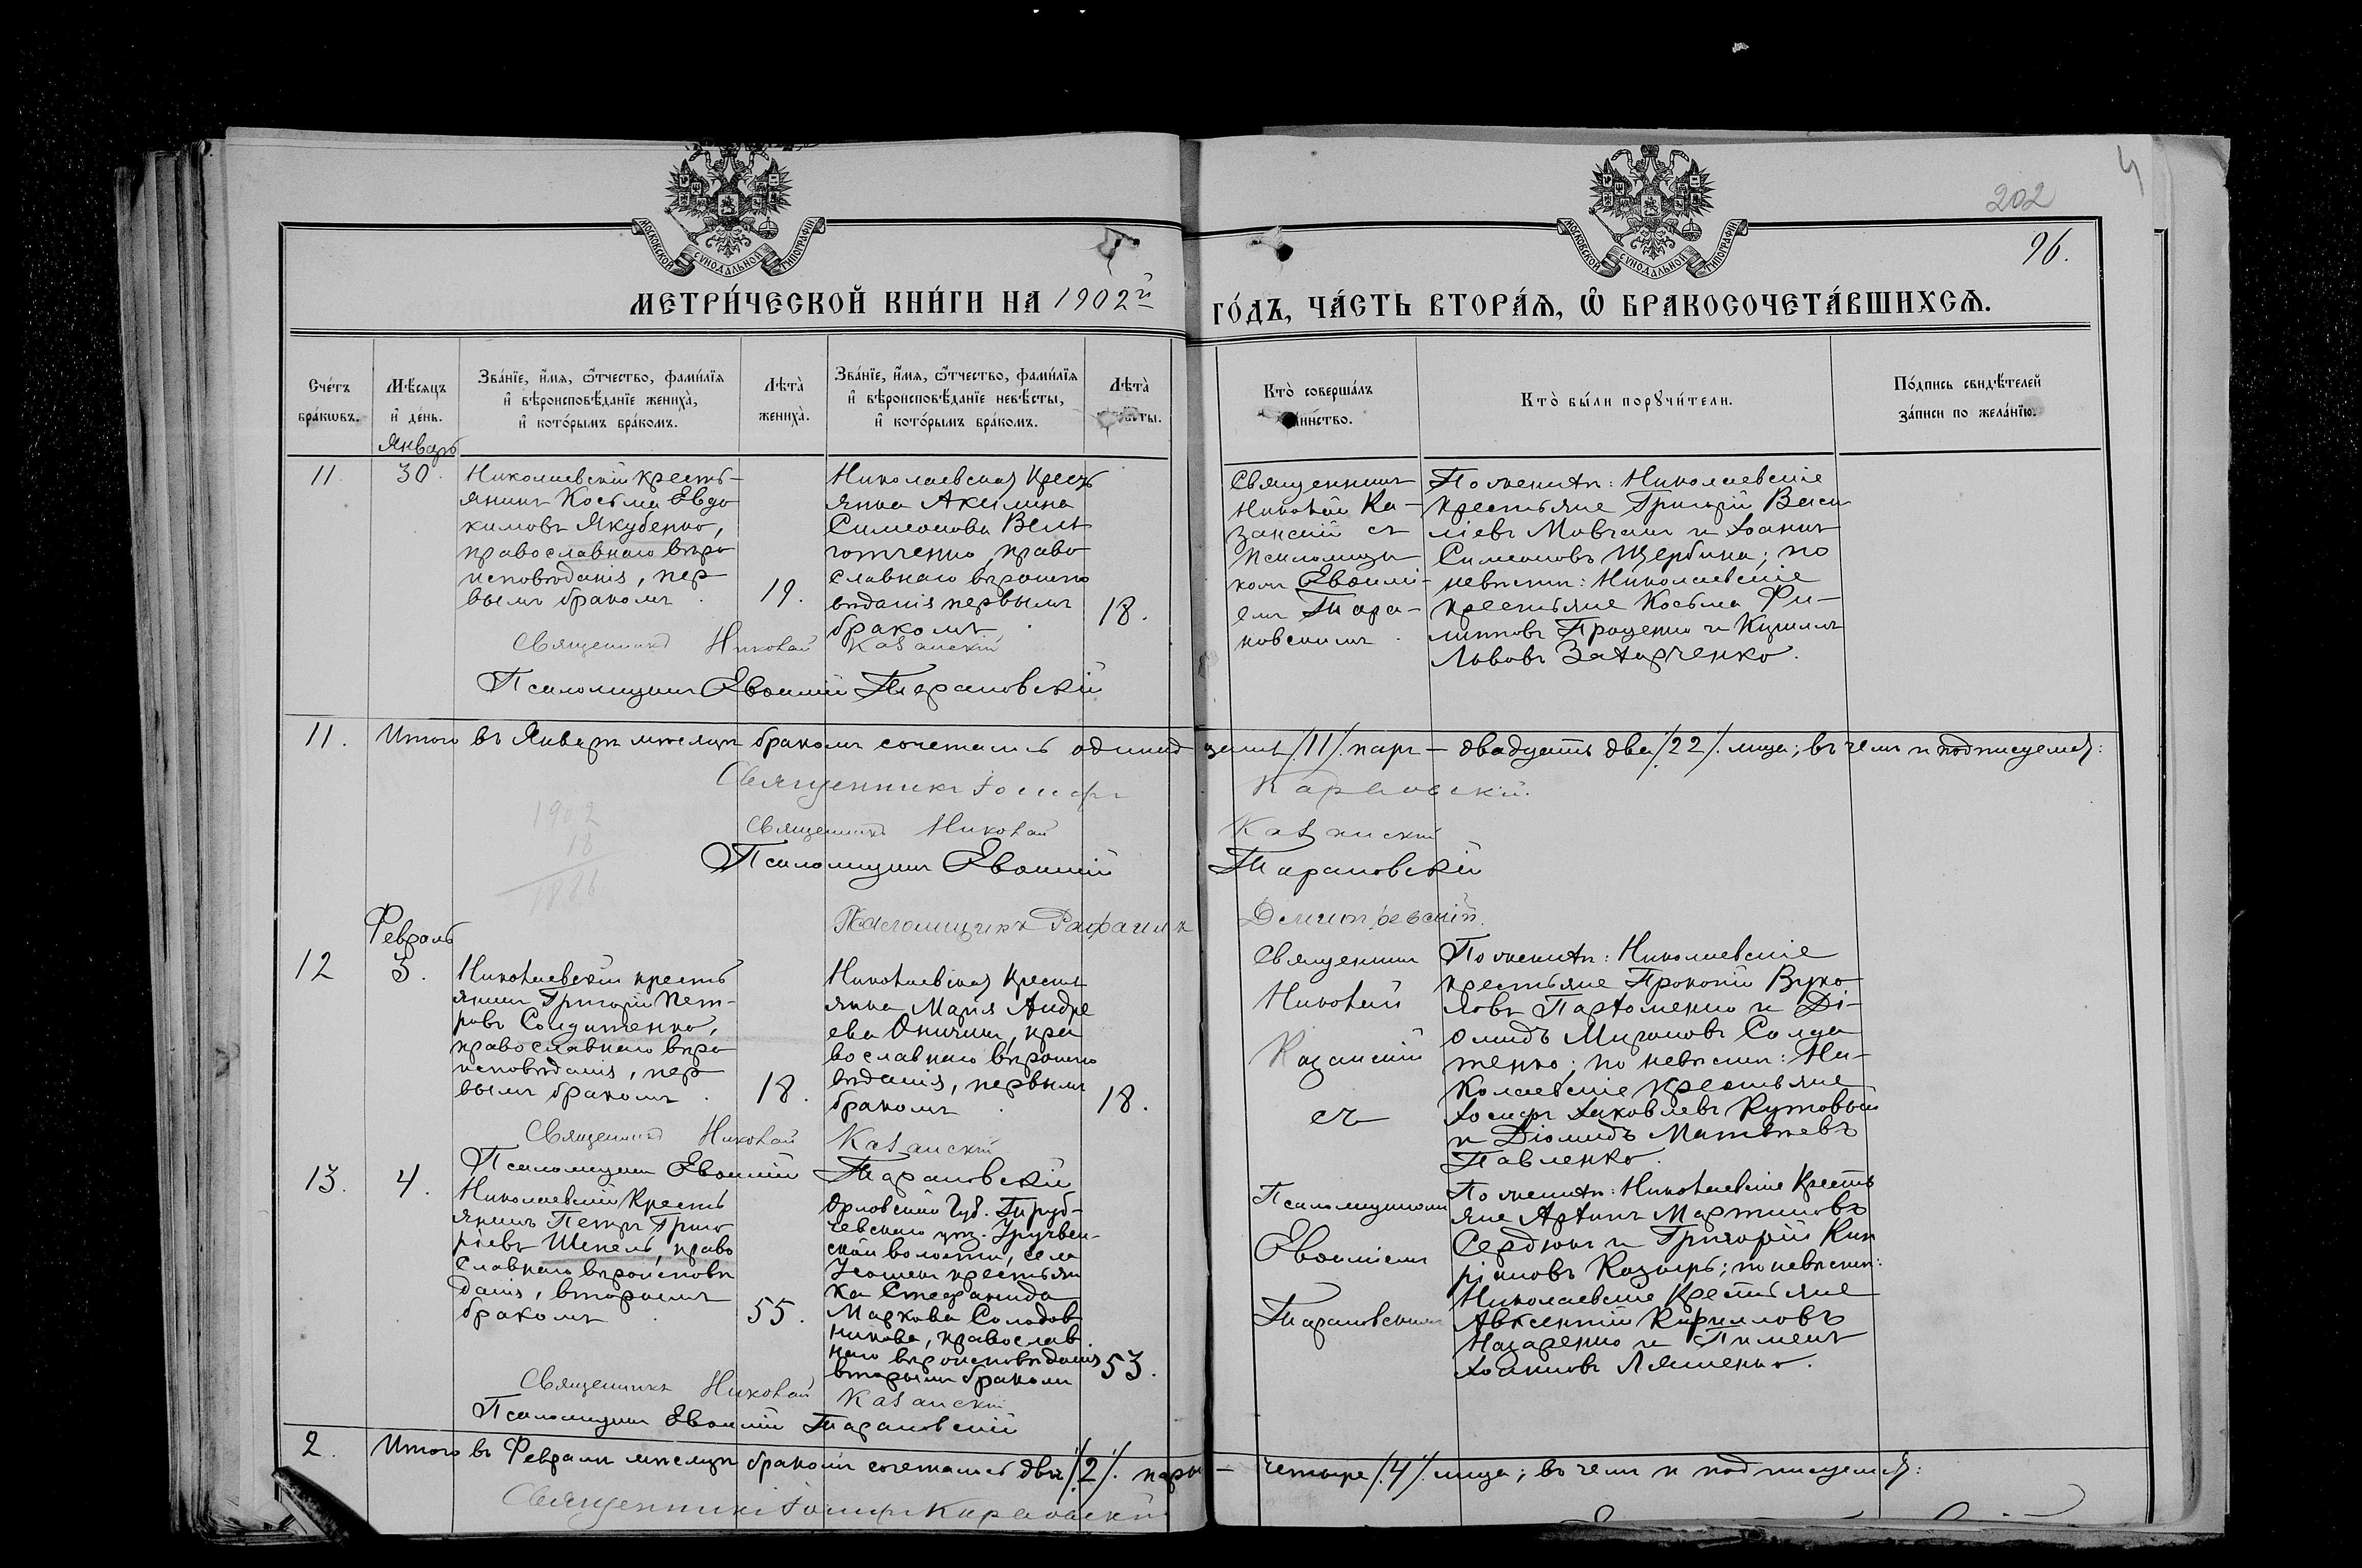 202
96.
МОСКОВСКОЙ СѴНОДАЛЬНОЙ ТИПОГРАФІИ
МОСКОВСКОЙ СѴНОДАЛЬНОЙ ТИПОГРАФІИ
МЕТРИ́ЧЕСКОЙ КНИ́ГИ НА 1902й ГО́ДЪ, ЧА́СТЬ ВТОРА́Ѧ, Ѡ҆ БРАКОСОЧЕТА́ВШИХСѦ.
Сче́тъ
бра́кѡвъ.
Мѣ́сяцъ
и҆ день.
Зва́нїе, и҆́мѧ, ѻ҆́тчество, фами́лїѧ
и҆ вѣроисповѣ́данїе жениха̀,
и҆ кото́рымъ бра́комъ.
Лѣта̀
жениха̀.
Зва́нїе, и҆́мѧ, ѻ҆́тчество, фами́лїѧ
и҆ вѣроисповѣ́данїе невѣ́сты,
и҆ кото́рымъ бра́комъ.
Лѣта̀
Кто̀ соверша́лъ
Кто̀ бы́ли порꙋчи́тели.
По́дпись свидѣ́телей
за́писи по жела́нїю.
Январь
11
30.
Николаевскій кресть-
янинъ Косьма Евдо
кимовъ Якубенко,
православнаго вѣро
исповѣданія, пер
вымъ бракомъ.
19.
Николаевская крест
янка Акилина
Симеонова
православнаго вѣроиспо
вѣданія первымъ
бракомъ.
18.
Священникъ
Николай Ка-
занскій съ
псаломщи
комъ Евѳимі-
емъ Тара-
новскимъ.
По женихѣ: Николаевскіе
крестьяне Григорій Васи
ліевъ Мовчанъ и Іоаннъ
Симеоновъ Щербина; по
невѣстѣ: Николаевскіе
крестьяне Косьма Фи-
липповъ Проценко и
Львовъ Захарченко.
Священникъ Николай Казанскій
Псаломщикъ Евѳимій Тарановскій
11. Итого въ Январѣ мѣсяцѣ бракомъ сочетались одинадцать /11/ паръ — двадцать два /22/ лица; въ чемъ и подписуемся:
Священникъ Іосифъ
Священникъ Николай Казанскій
Псаломщикъ Евѳимій Тарановскій
1902
18
Псаломщикъ Рафаилъ
Февраль
12
3.
Николаевскій кресть
янинъ Григорій Пет-
ровъ Солдатенко,
православнаго вѣро
исповѣданія, пер
вымъ бракомъ.
18.
Николаевская крест
янка Марія Андре
ева пра
вославнаго вѣроиспо
вѣданія, первымъ
бракомъ.
18.
Священникъ
Николай
Казанскій
съ
По женихѣ: Николаевскіе
крестьяне Прокопій Вуко
ловъ Пархоменко и Ді-
омидъ Мироновъ Солда
тенко; по невѣстѣ: Ни-
колаевскіе крестьяне
Іосифъ Іаковлевъ Кутовый
и Діомидъ Матвѣевъ
Павленко.
Священникъ Николай Казанскій
Псаломщикъ Евѳимій Тарановскій
13.
4.
Николаевскій кресть
янинъ Петръ Григо
ріевъ Шепель, право
славнаго вѣроисповѣ
данія, вторымъ
бракомъ.
55.
Орловской Губ. Труб-
чевскаго уѣз.
ской волости, села
крестьян
ка Стефанида
Маркова Солодов
никова, православ
наго вѣроисповѣданія
вторымъ бракомъ
53.
Псаломщикомъ
Евѳиміемъ
Тарановскимъ
По женихѣ: Николаевскіе кресть
яне Мартиновъ
Сердюкъ и Григорій Кип
ріановъ Козырь; по невѣстѣ:
Николаевскіе крестьяне
Авксентій Кирилловъ
Назаренко и Пименъ
Іоанновъ Ляшенко.
Священникъ Николай Казанскій
Псаломщикъ Евѳимій Тарановскій
2. Итого въ Февралѣ мѣсяцѣ бракомъ сочетались двѣ /2/ пары — четыре /4/ лица; въ чемъ и подписуемся:
Священникъ Іосифъ